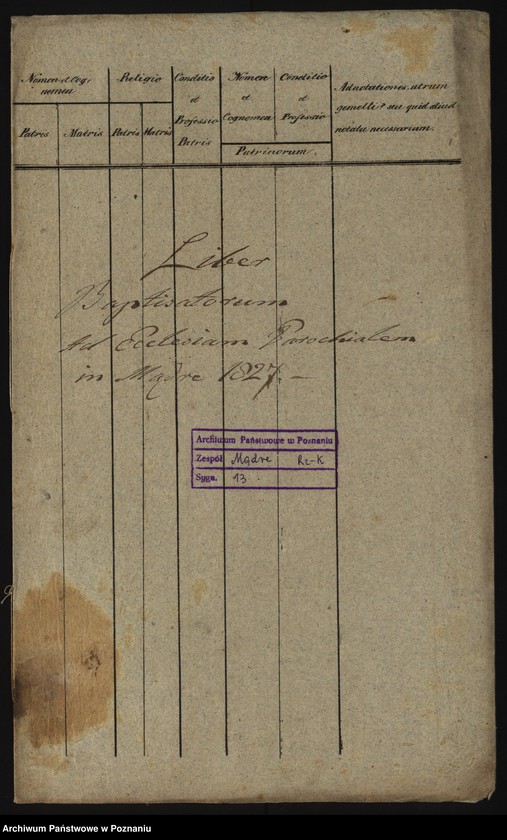 Nomen et Cog,
nomen
Patris
Matris
Religio
Patris
Matris
Conditio
et
Professio
Patris
Nomen
et
Cognomen
Conditio
et
Professio
Patrinorum.
Adnotationes, utrum
gemelli? seu quid aliud
notatu necessarium.
Liber
Baptisatorum
Ad Ecclesiam Parochialem
in Mądre 1827. –
Archiwum Państwowe w Poznaniu
Zespół Mądre Rz-K
Sygn. 13.
Archiwum Państwowe w Poznaniu